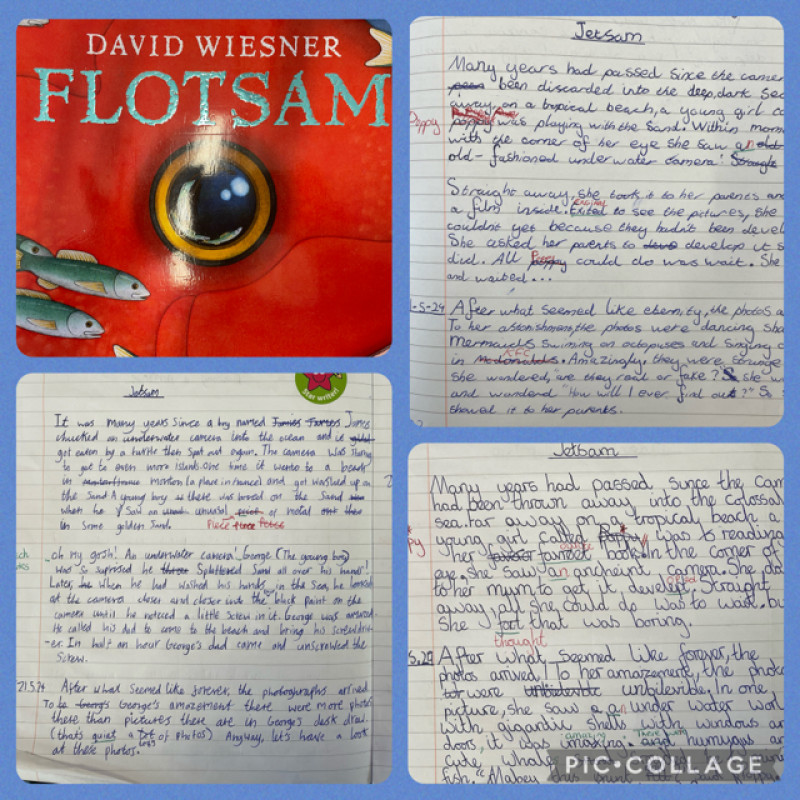 DAVID WIESNER
FLOTSAM
Jetsam
Many years had passed since the camer
been discarded into the deep, dark sea
away, on a tropical beach, a young girl ca
Poppy was playing with the sand. Within mom
with the corner of her eye she saw an old
old-fashioned underwater camera! Straight
Straight away, she took it to her parents an
a film inside. Exited to see the pictures, she
couldnt yet because they hadn't been devel
She asked her parents to develop it s
did. All Poppy could do was wait. She
and waited...
-5-24 After what seemed like eternity, the photos a
To her astonishment, the photos were dancing sha
Mermaids swiming on octopuses and singing c
in KFC. Amazingly, they were strange
she wondered, are they real or fake? She w
and wonderd "How will I ever find out?" S
showed it to her parents.
Star writer!
Jetsam
It was many years since a boy named James
chucked an underwater camera into the ocean and it
got eaten by a turtle then spat out again. The camera was
to get to even more islands. One time it went to a beach
in morton (a place in france) and got washed up on
the sand. A young boy there was bored on the sand
when he saw an unusual of metal
in some golden sand. Piece
oh my gosh! An underwater camera! George (The young boy)
was so suprised he splattered sand all over his hands!
Later, when he had washed his hands in the sea, he looked
at the camera closer and closer into the black paint on the
camera until he noticed a little screw in it. George was amazed.
He called his dad to come to the beach and bring his screwdriv
-er. In half an hour George's dad came and unscrewed the
screw.
21.5.24 After what seemed like forever, the photographs arrived.
To George's amazement there were more photos
there than pictures there are in George's desk draw.
(that's quiet a lot of photos) Anyway, let's have a look
at these photos.
Jetsam
Many years had passed since the cam
had been thrown away into the colossal
sea. Far away on a tropical beach a
young girl called Poppy, was readin
her book. In the corner of
eye, she saw an ancheint camera. She do
to her mum to get it developed. Straight
away, all she could do was to wait. bu
She thought that was boring.
5.24 After what seemed like forever, the
photos arrived. To her amazement, the phot
were unbilevible. In one
picture, she saw an under water worl
with gigantic shells with windows an
doors, it was amazing. There were humyous an
cute whale
fish. "Mabey this
PIC•COLLAGE